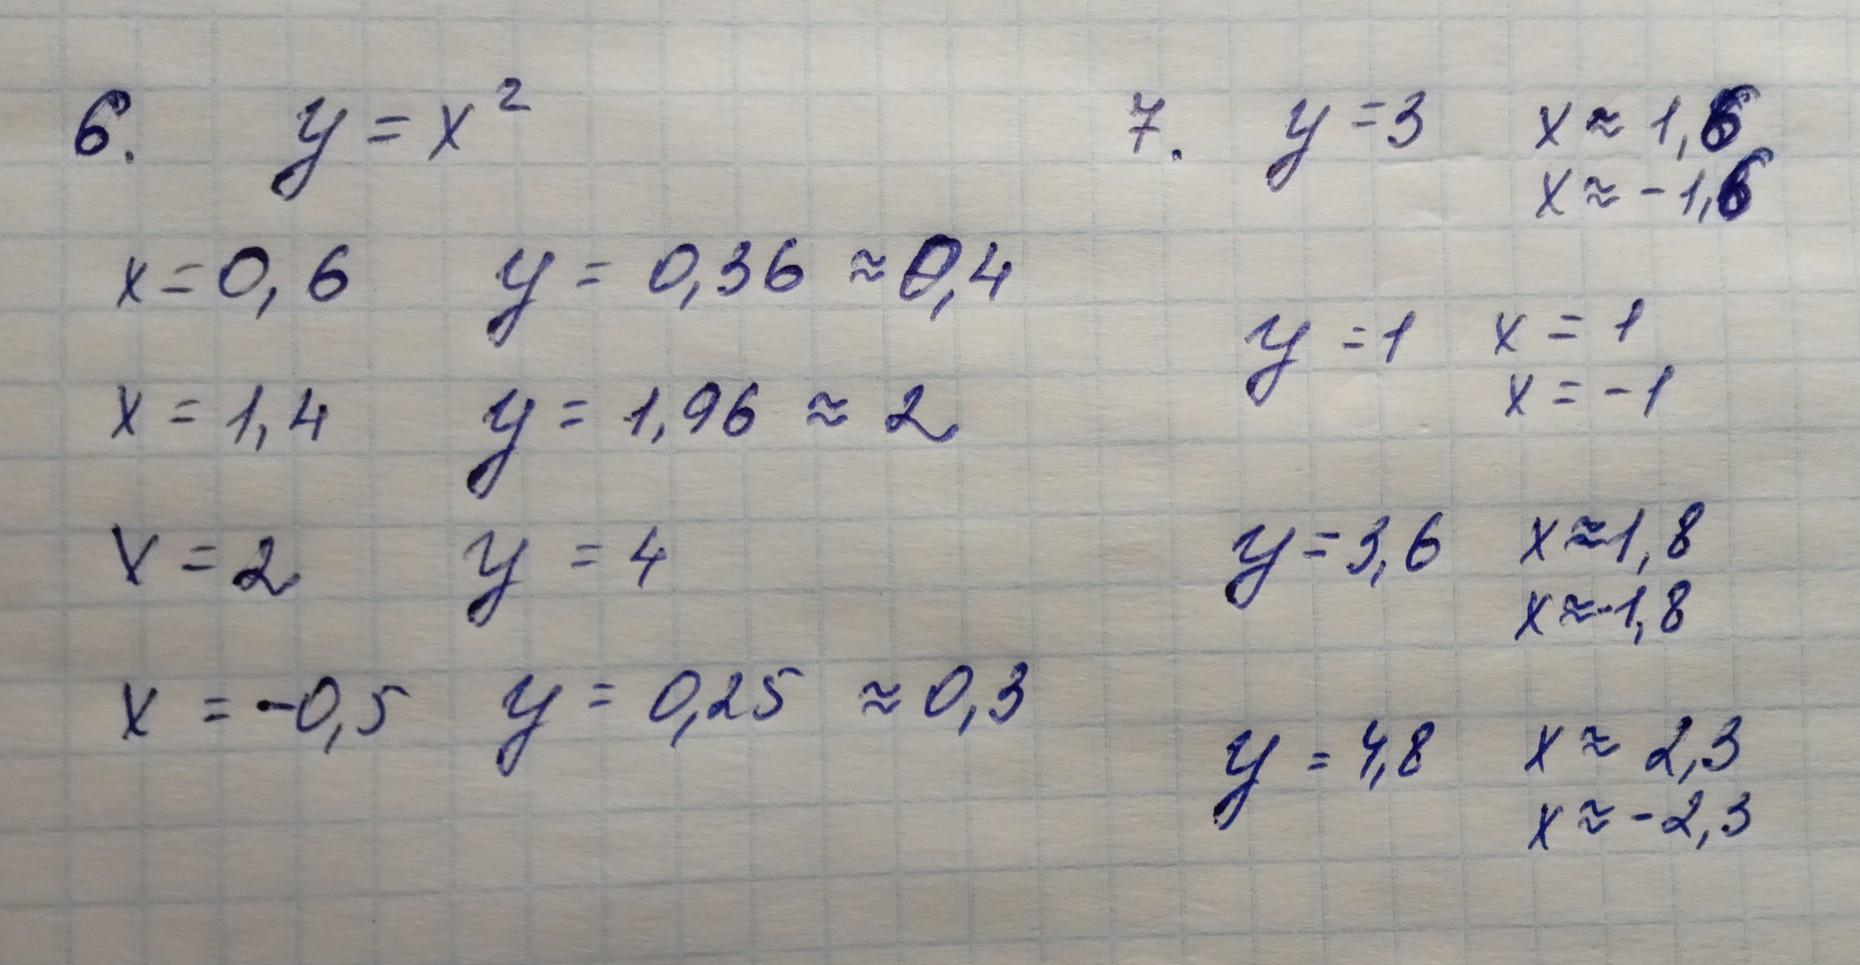 6. y = x²
x = 0,6 y = 0,36 ≈ 0,4
x = 1,4 y = 1,96 ≈ 2
x = 2 y = 4
x = -0,5 y = 0,25 ≈ 0,3
7. y = 3 x ≈ 1,6
x ≈ -1,6
y = 1 x = 1
x = -1
y = 3,6 x ≈ 1,8
x ≈ -1,8
y = 4,8 x ≈ 2,3
x ≈ -2,3